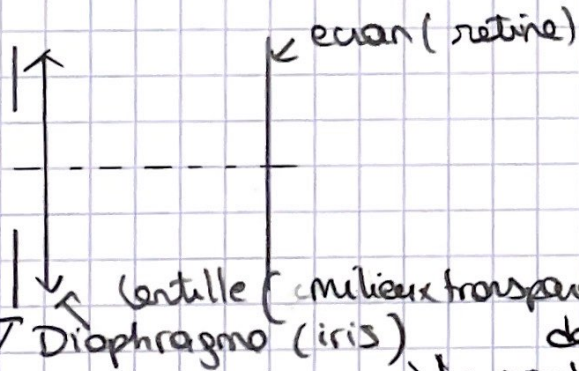 ecran (retine)
lentille ( milieux transpa
Diaphragme (iris)